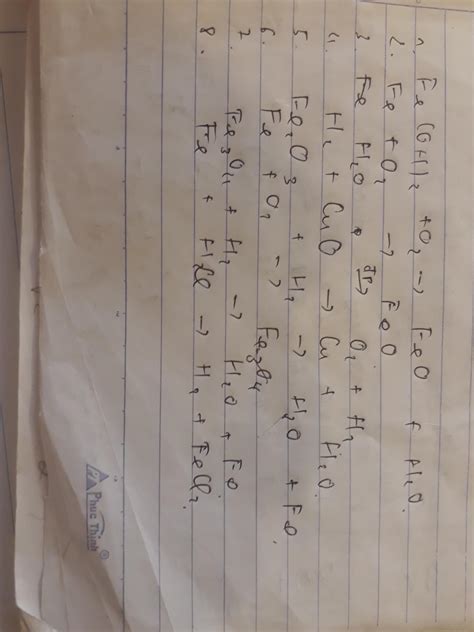 1. Fe(OH)2 + O2 → FeO + H2O.
2. Fe + O2 → FeO
3 Fe H2O đp→ O2 + H2
4. H2 + CuO → Cu + H2O.
5. Fe2O3 + H2 → H2O + Fe
6. Fe + O2 → Fe3O4
7. Fe3O4 + H2 → H2O + Fe
8. Fe + HCl → H2 + FeCl2
Phuc Thinh ®